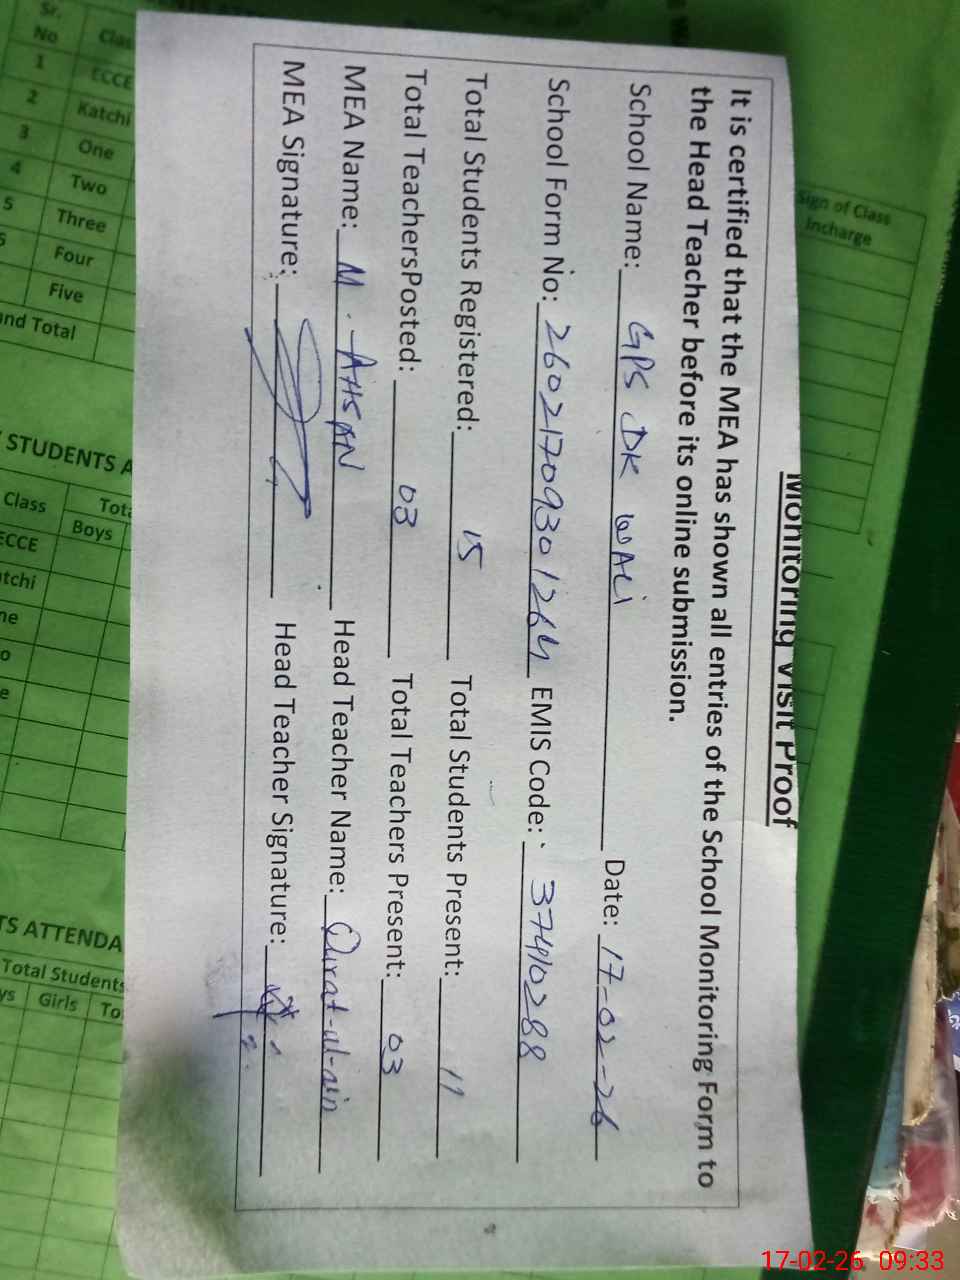 Monitoring Visit Proof
It is certified that the MEA has shown all entries of the School Monitoring Form to
the Head Teacher before its online submission.
School Name: GPS DK WALI Date: 17-02-26
School Form No: 26021709301264 EMIS Code: 37410288
Total Students Registered: 15 Total Students Present: 11
Total TeachersPosted: 03 Total Teachers Present: 03
MEA Name: M. AHSAN Head Teacher Name: Qurat-ul-ain
MEA Signature: Head Teacher Signature:
Sign of Class
Incharge
Sr.
No
1 ECCE
2 Katchi
3 One
4 Two
5 Three
Four
Five
Total
STUDENTS
Class
Boys
ECCE
Total Students
Girls
17-02-26 09:33